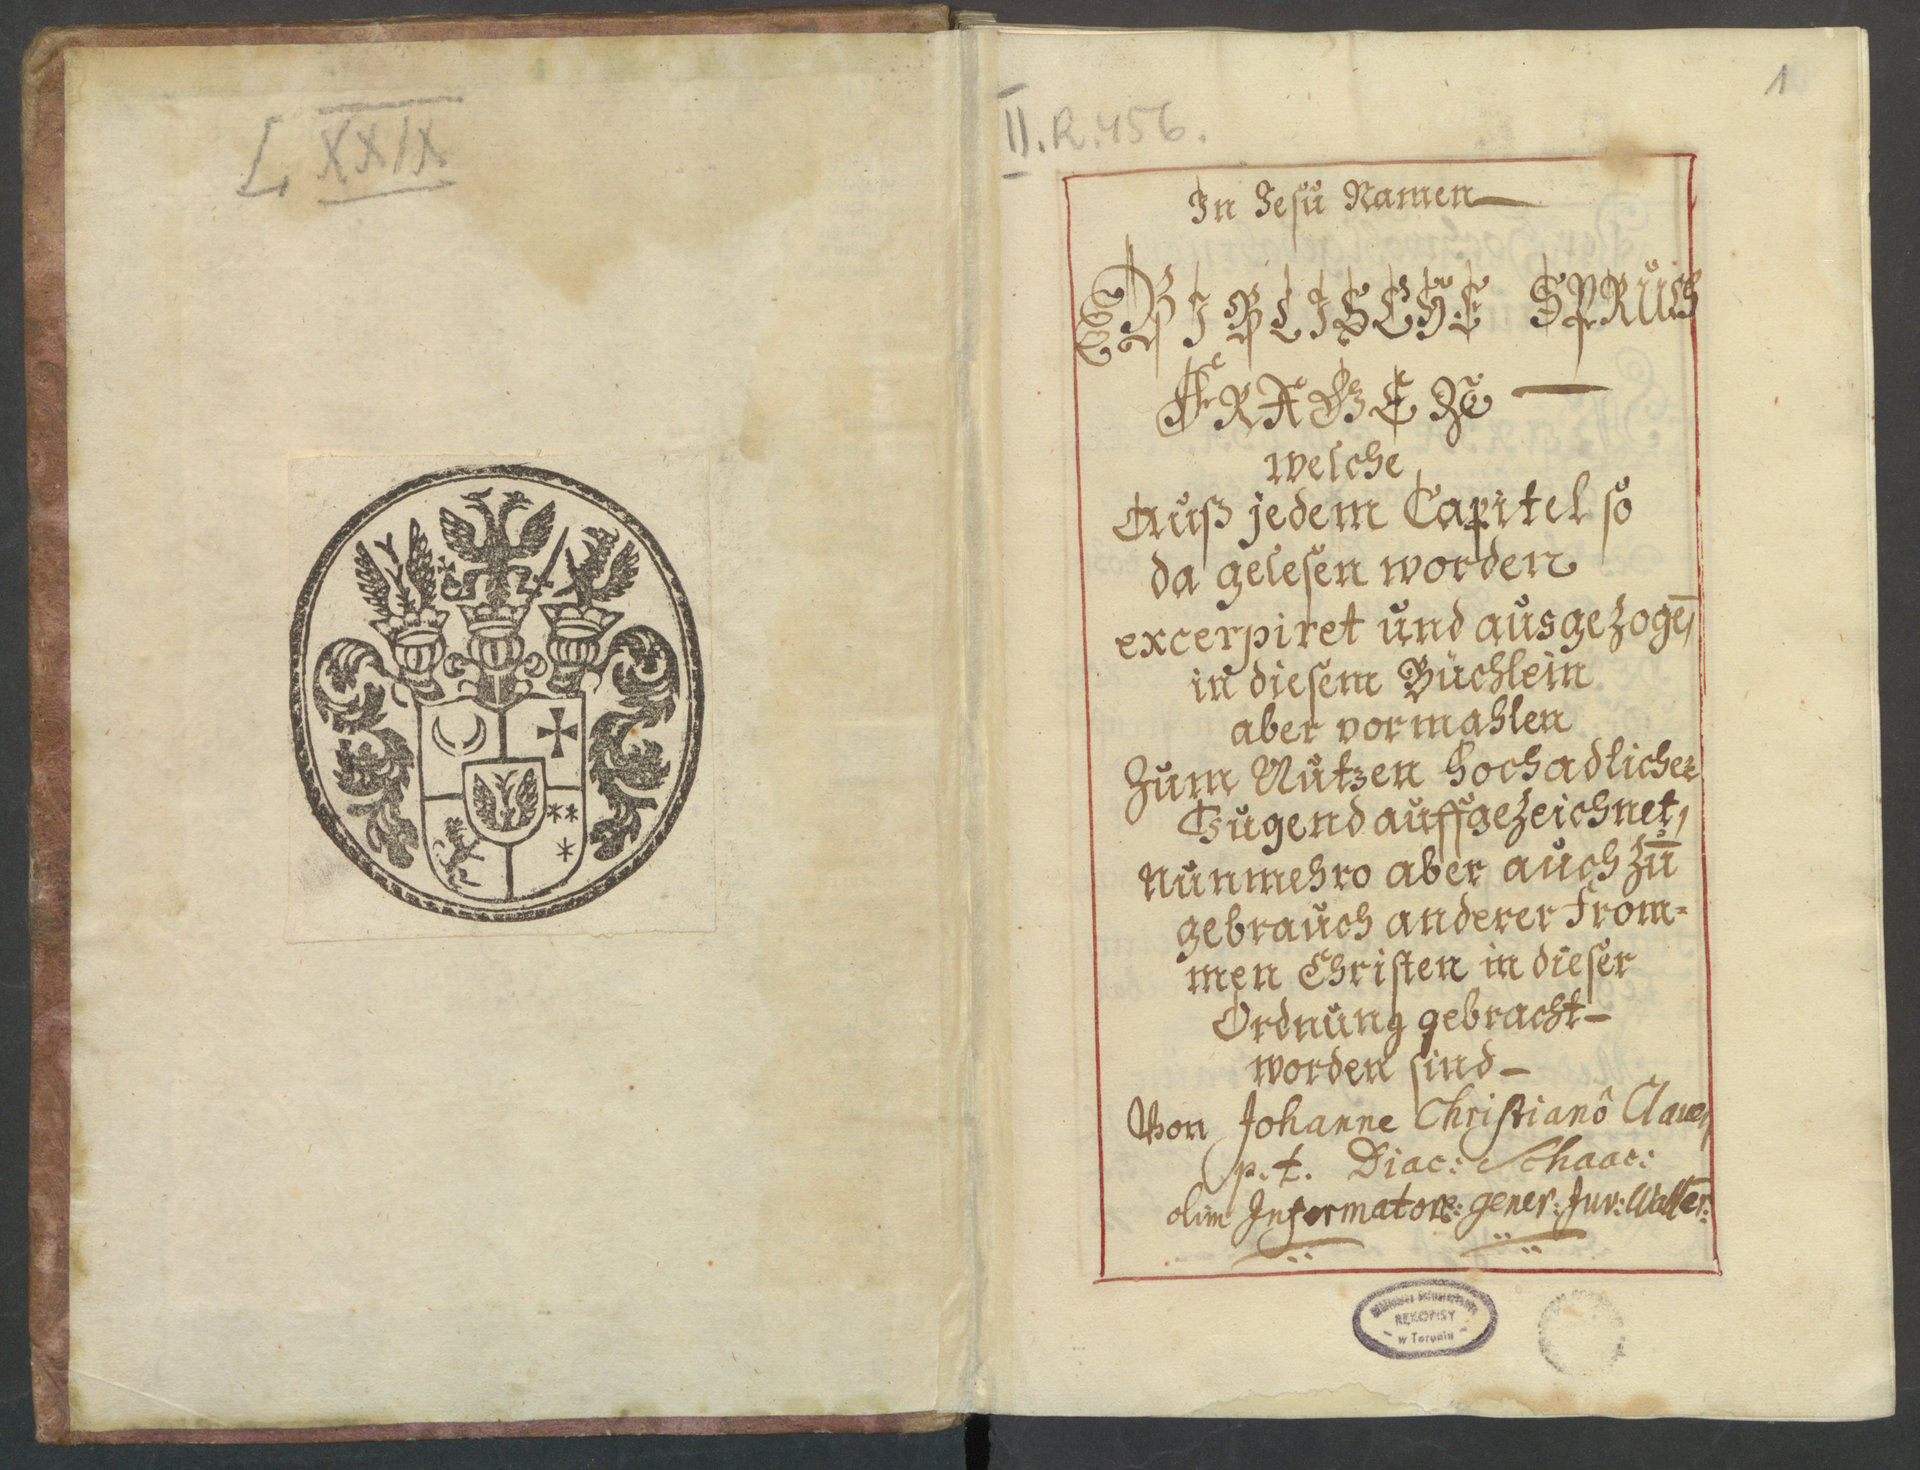 L, XXIX
II. R. 456.
1
In Jesu Namen
BIBLISCHE SPRUCH
FRAGEN
welche
Auß jedem Capitel so
da gelesen worden
excerpiret und ausgezogē,
in diesem Büchlein
aber vormahlen
Zum Nutzen hochadlicher
Jugend auffgezeichnet,
nunmehro aber auch zū
gebrauch anderer from=
men Christen in dieser
Ordnung gebracht
worden sind
Von Johanne Christianô
p. t. Diac: Schaac:
olim Informatore: gener: Juv: Waller:
RĘKOPISY
w Toruniu